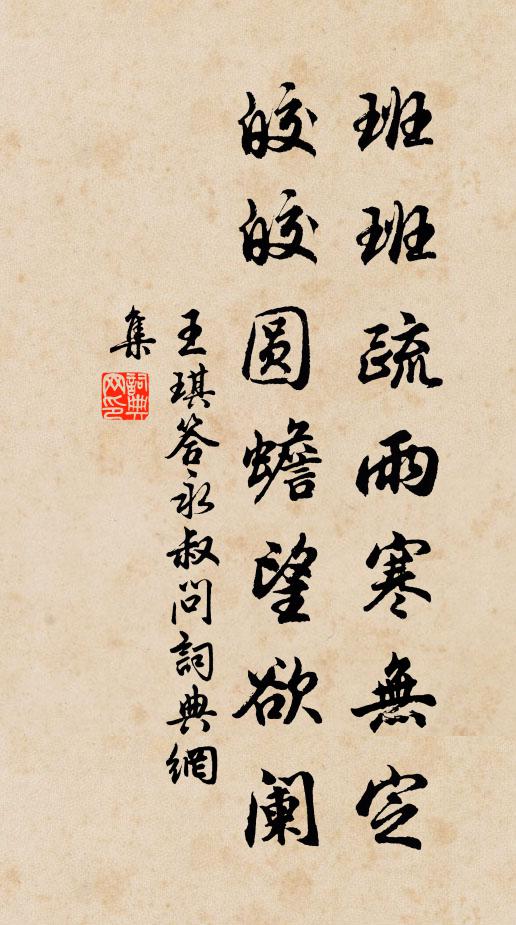 班班疏雨寒無定
皎皎圆蟾望欲阑
王琪答永叔問詞典網
集
詞典
网印